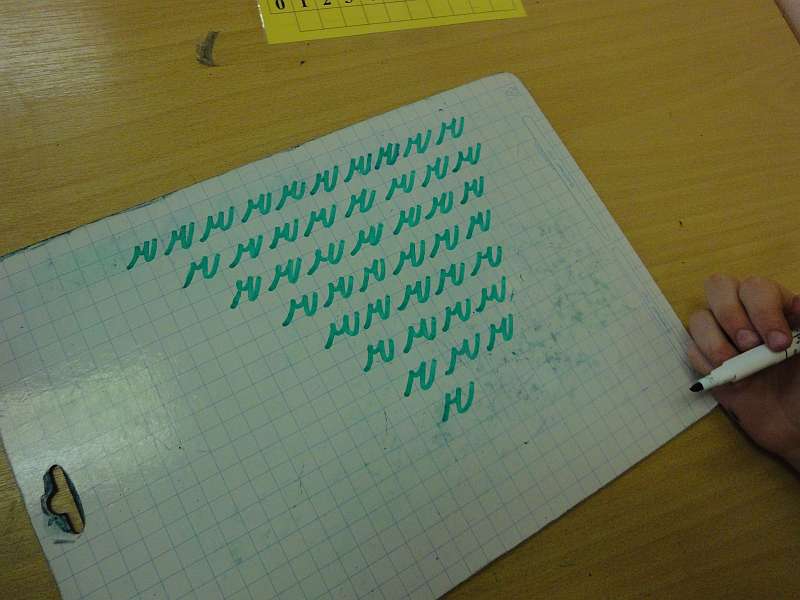 0 1 2 3
м м м м м м м м м м
м м м м м м м м
м м м м м м м
м м м м м м
м м м м м
м м м м
м м м
м